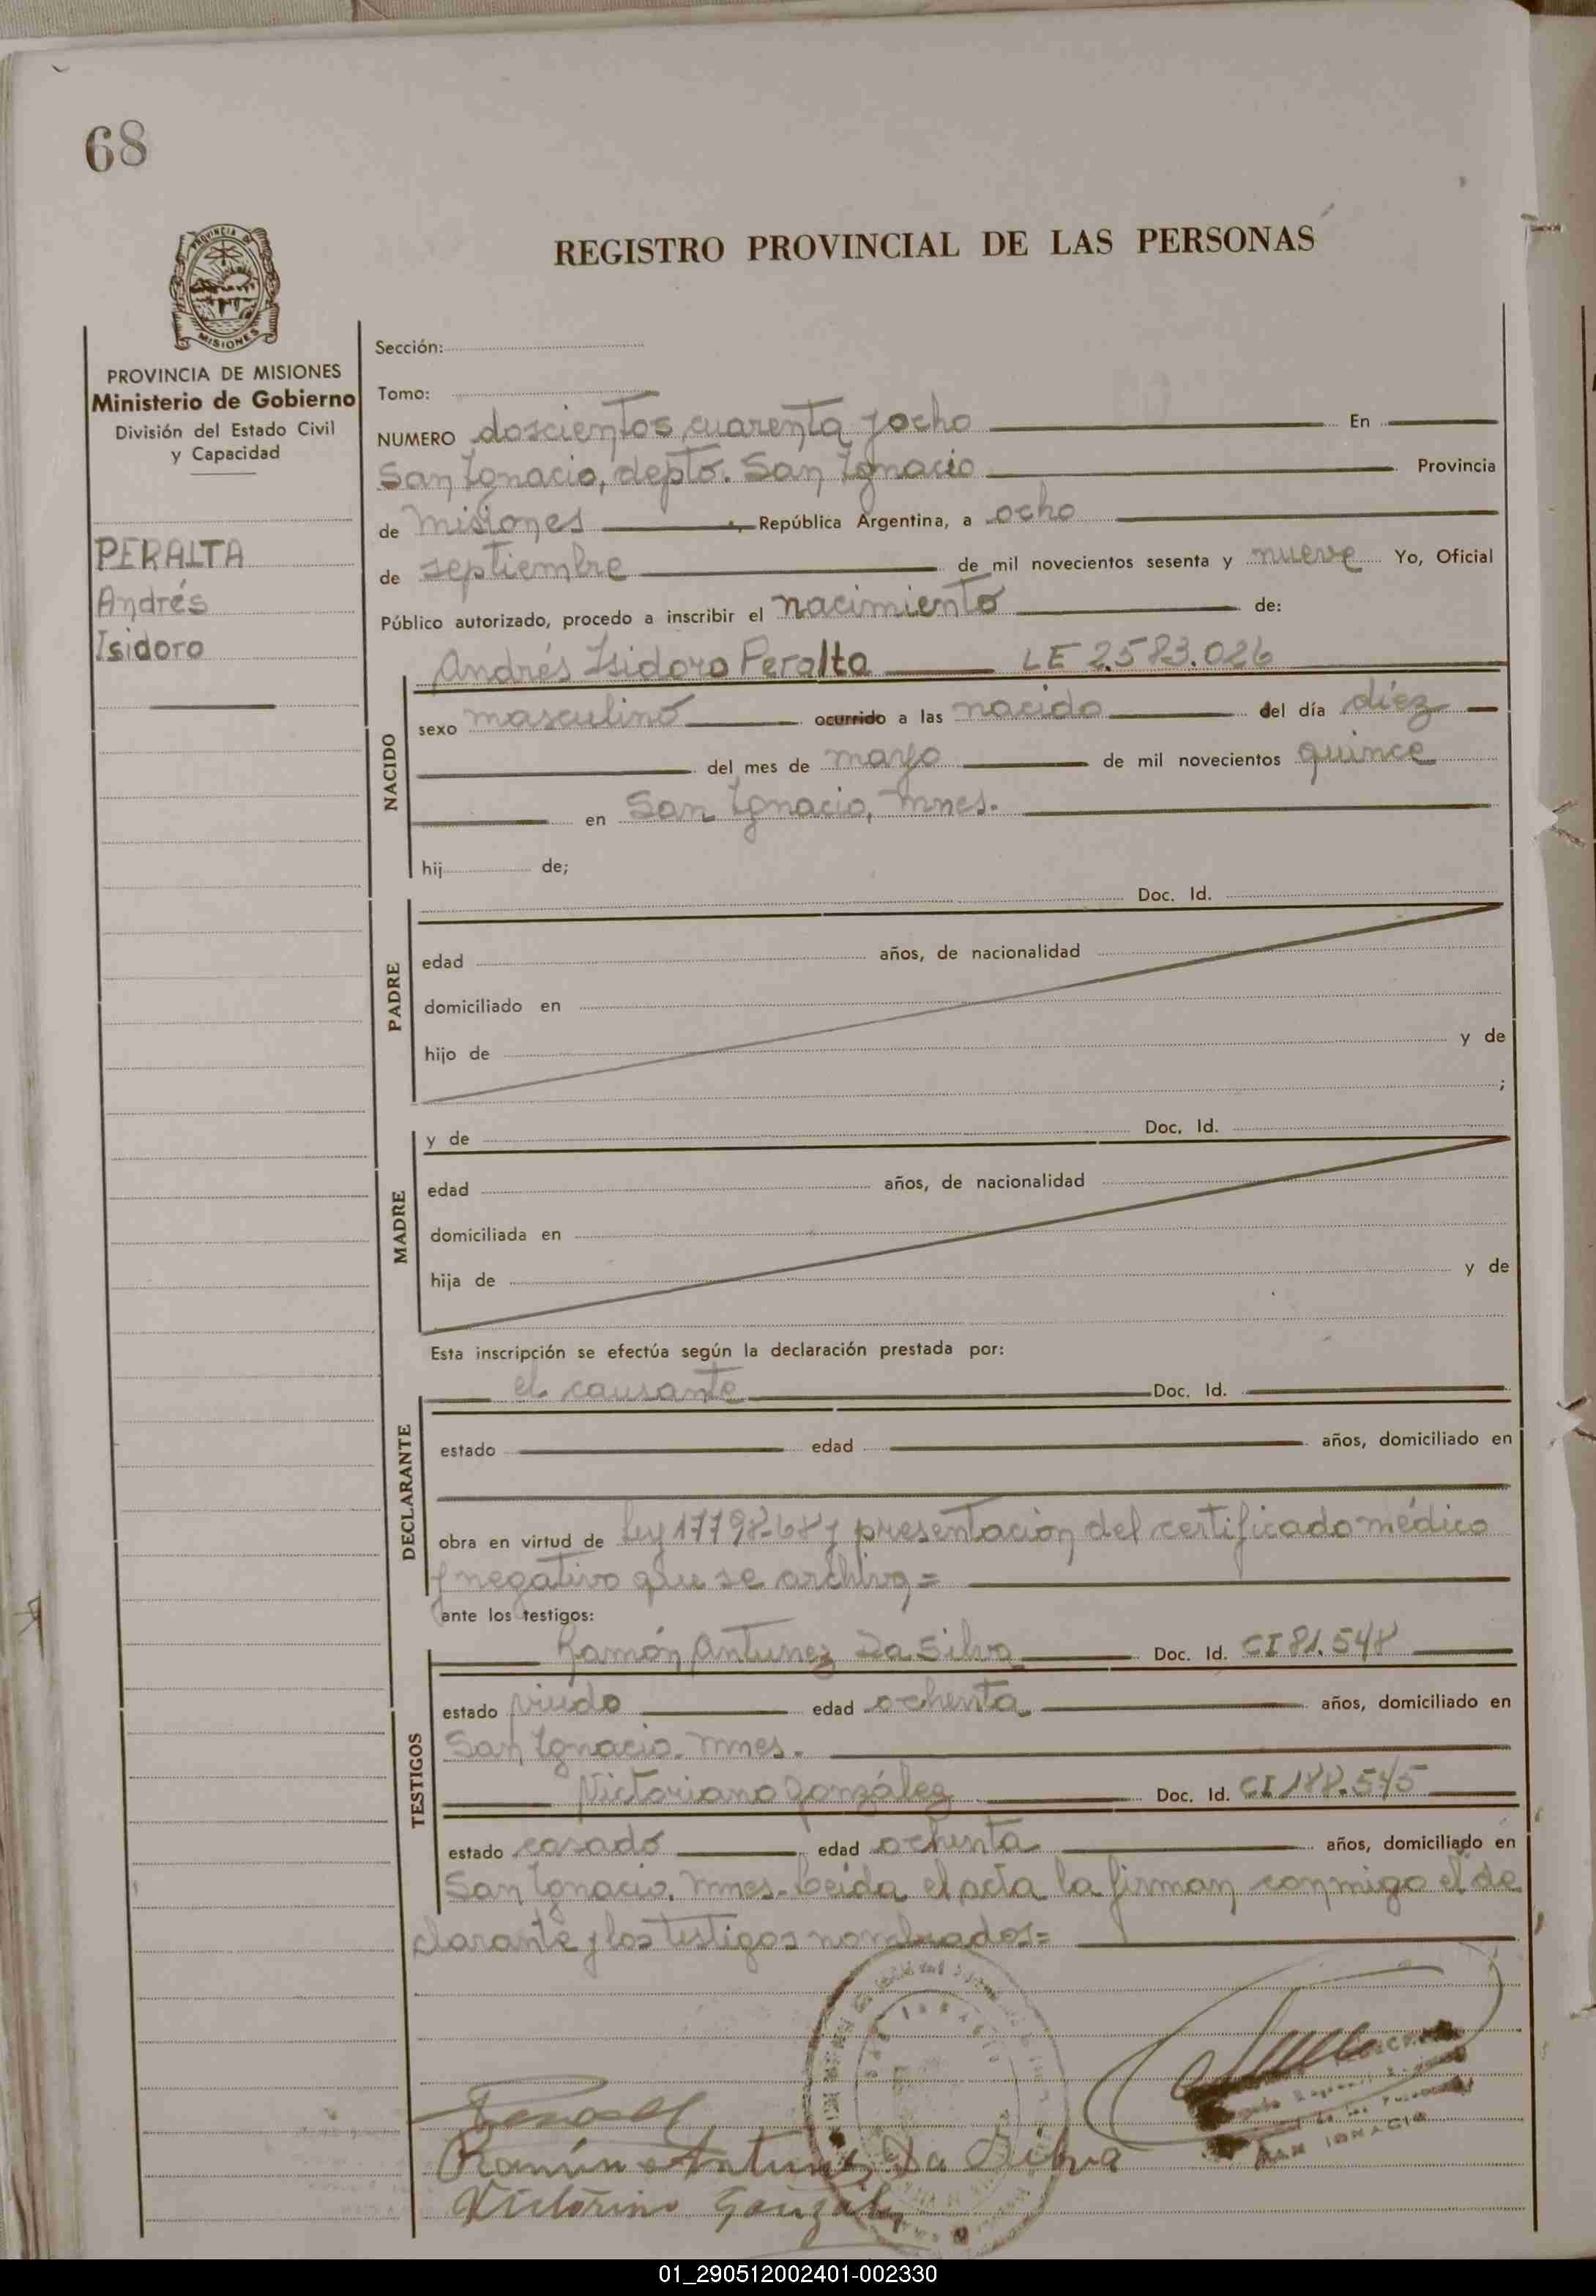 68
REGISTRO PROVINCIAL DE LAS PERSONAS
PROVINCIA DE MISIONES
Ministerio de Gobierno
División del Estado Civil
y Capacidad
PERALTA
Andrés
Isidoro
Sección:
Tomo:
NUMERO doscientos cuarenta y ocho En
San Ignacio, depto. San Ignacio Provincia
de Misiones, República Argentina, a ocho
de septiembre de mil novecientos sesenta y nueve Yo, Oficial
Público autorizado, procedo a inscribir el nacimiento de:
Andrés Isidoro Peralta LE 2.583.026
NACIDO
sexo masculino ocurrido a las nacido del día diez
del mes de mayo de mil novecientos quince
en San Ignacio, Mnes.
hij de;
PADRE
Doc. Id.
edad años, de nacionalidad
domiciliado en
hijo de y de
;
MADRE
y de Doc. Id.
edad años, de nacionalidad
domiciliada en
hija de y de
Esta inscripción se efectúa según la declaración prestada por:
DECLARANTE
el causante Doc. Id.
estado edad años, domiciliado en
obra en virtud de ley 17798-68 y presentación del certificado médico
y negativo que se archiva=
ante los testigos:
TESTIGOS
Ramón Antunez Da Silva Doc. Id. CI 81.548
estado viudo edad ochenta años, domiciliado en
San Ignacio. Mnes.
Victoriano González Doc. Id. CI 188.545
estado casado edad ochenta años, domiciliado en
San Ignacio. Mnes. Leida el acta la firman conmigo el de
clarante y los testigos nombrados=
Ramón Antunez Da Silva
Victorino Gonzále
SAN IGNACIO
01_290512002401-002330